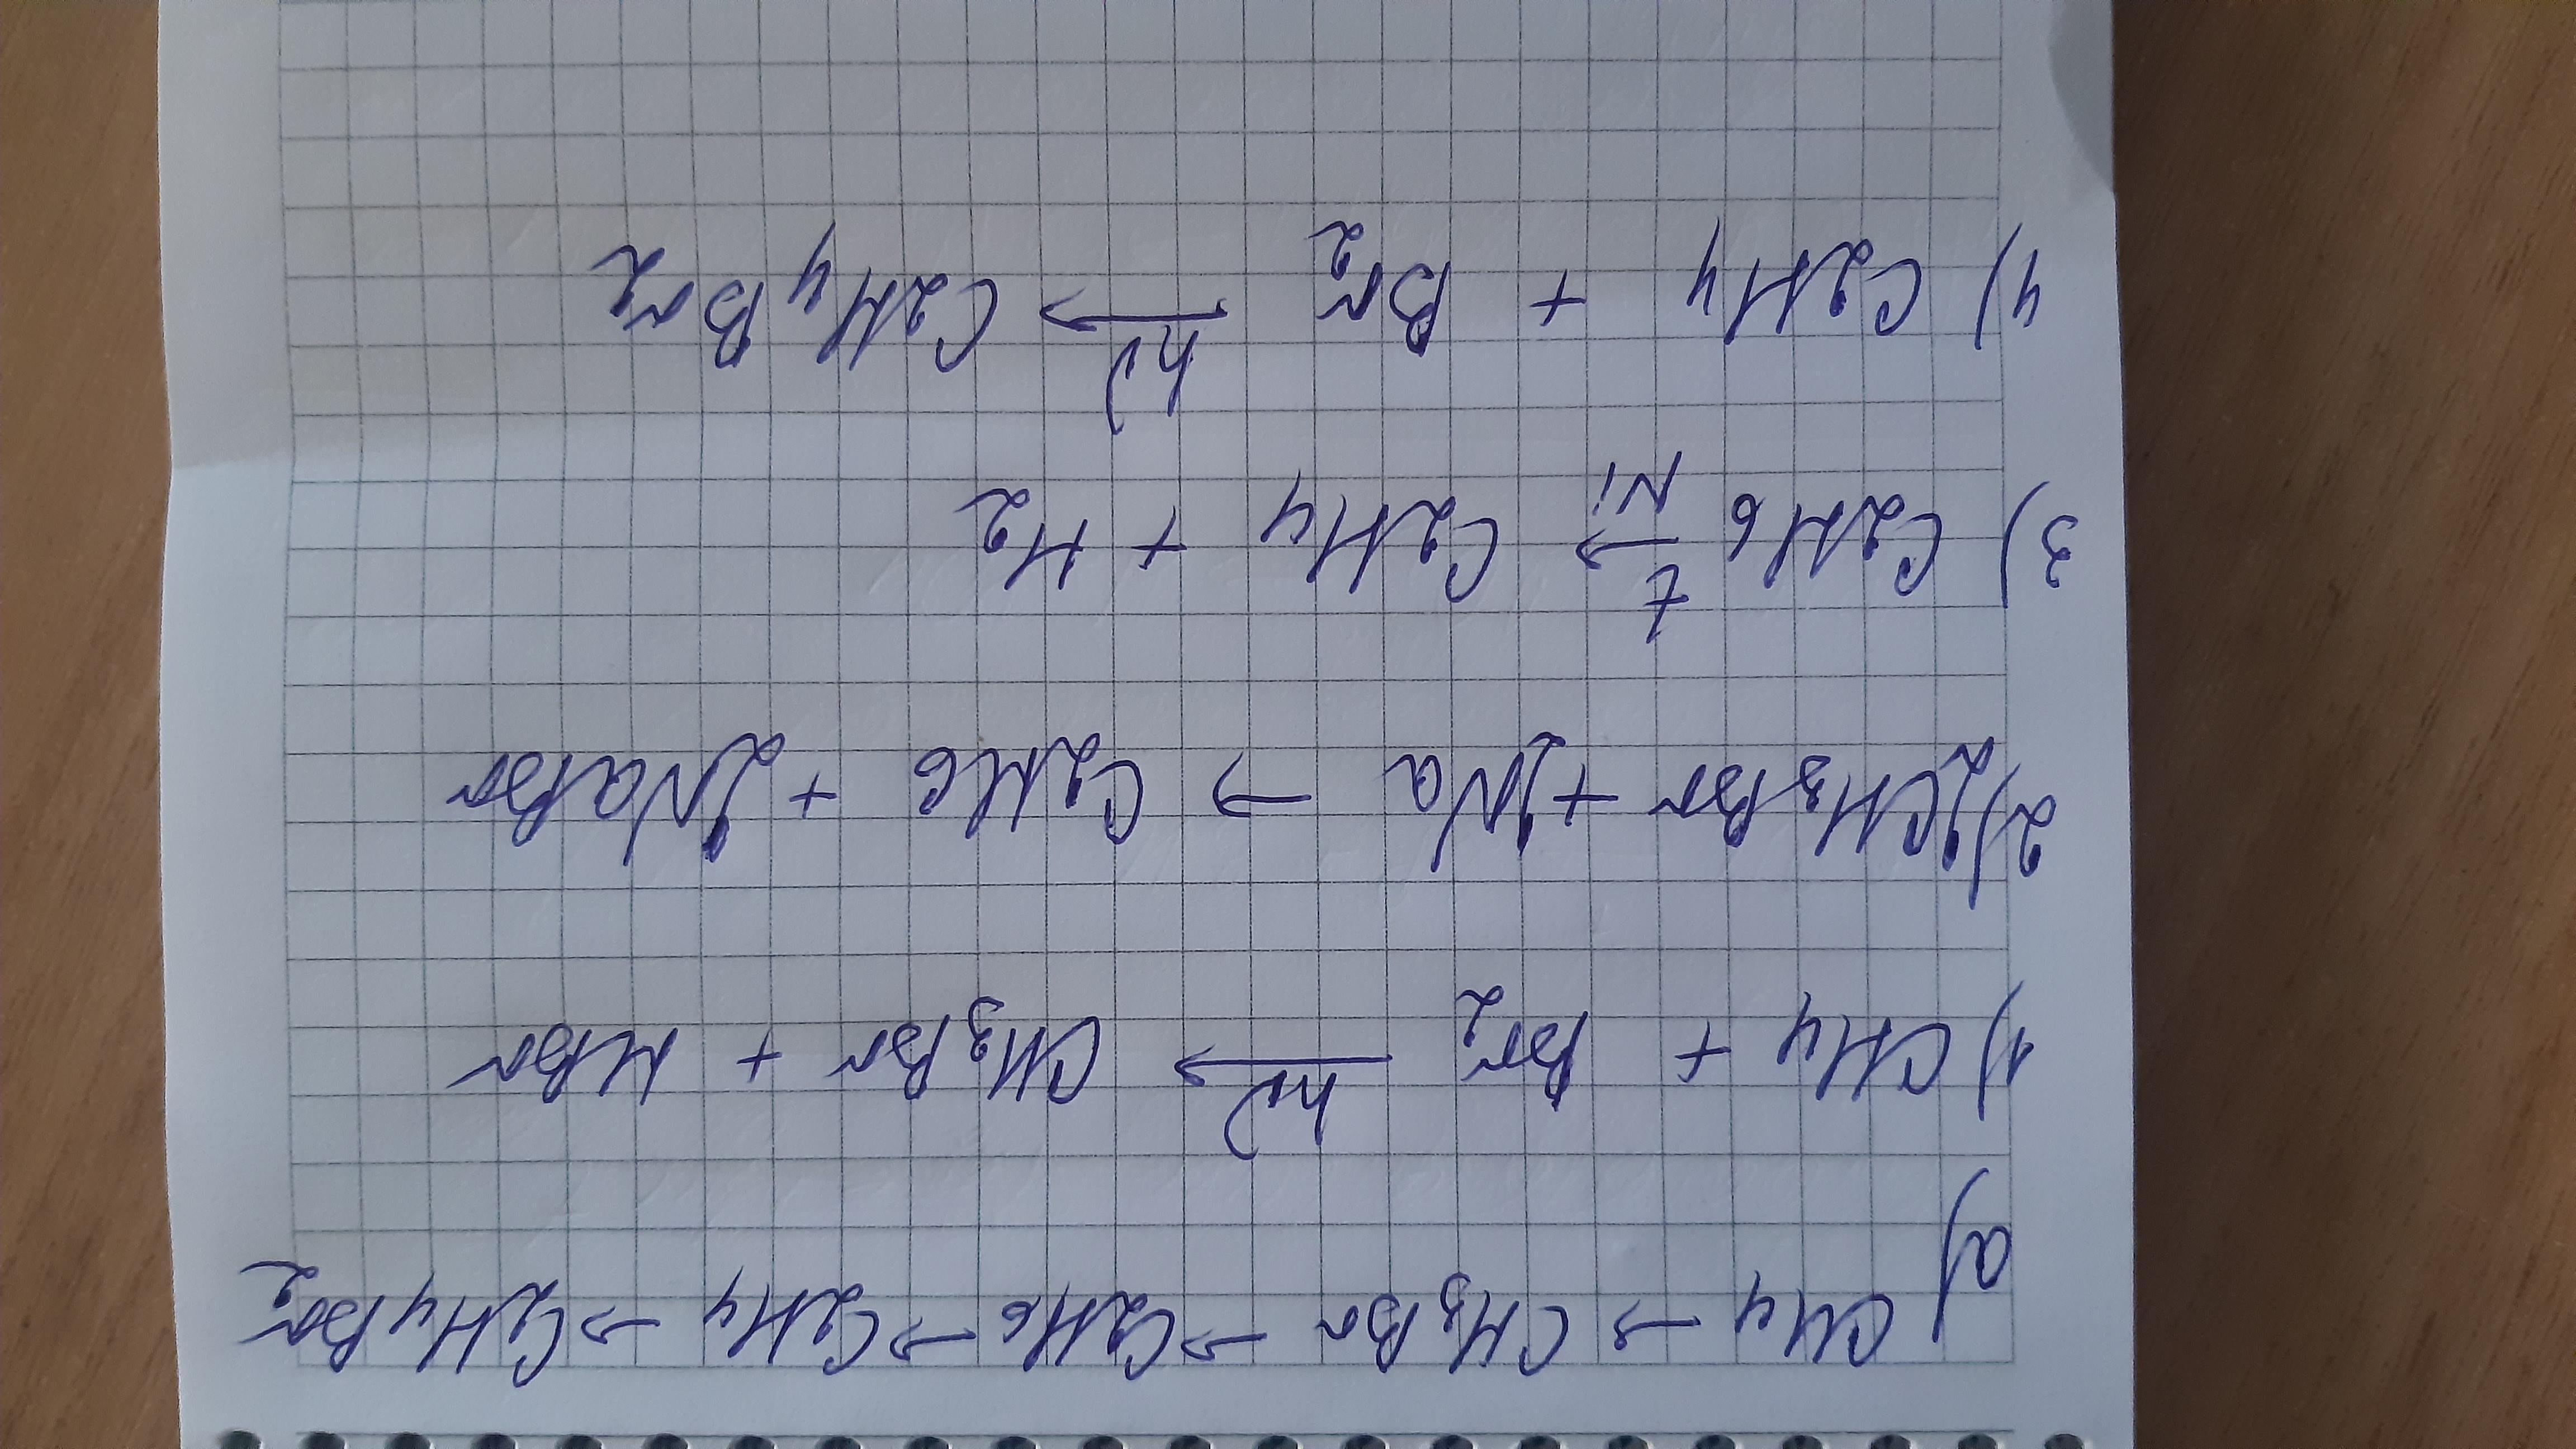 a) CH4 → CH3Br → C2H6 → C2H4 → C2H4Br2
1) CH4 + Br2 hν→ CH3Br + HBr
2) 2CH3Br + 2Na → C2H6 + 2NaBr
3) C2H6 t→Ni C2H4 + H2
4) C2H4 + Br2 hν→ C2H4Br2